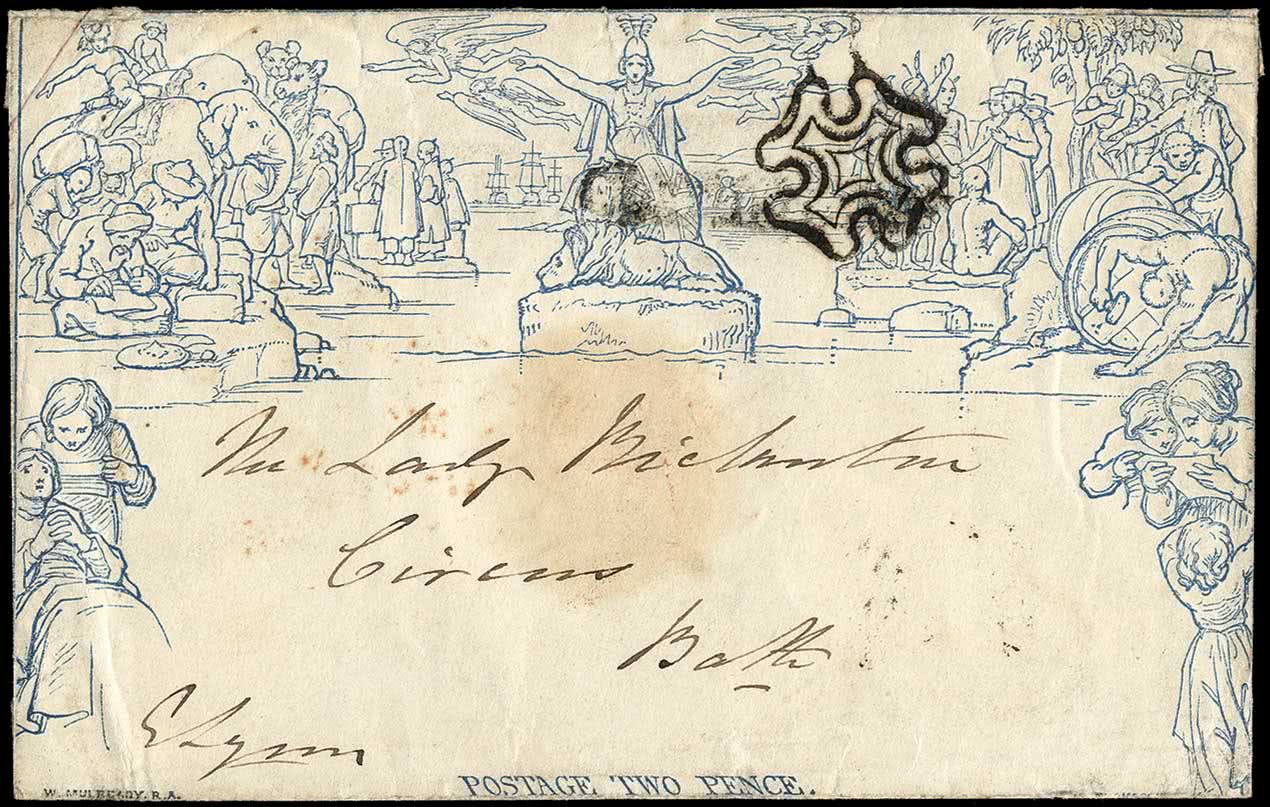 The Lady
Circus
Bath
E Lynn
POSTAGE TWO PENCE.
W. MULREADY. R.A.